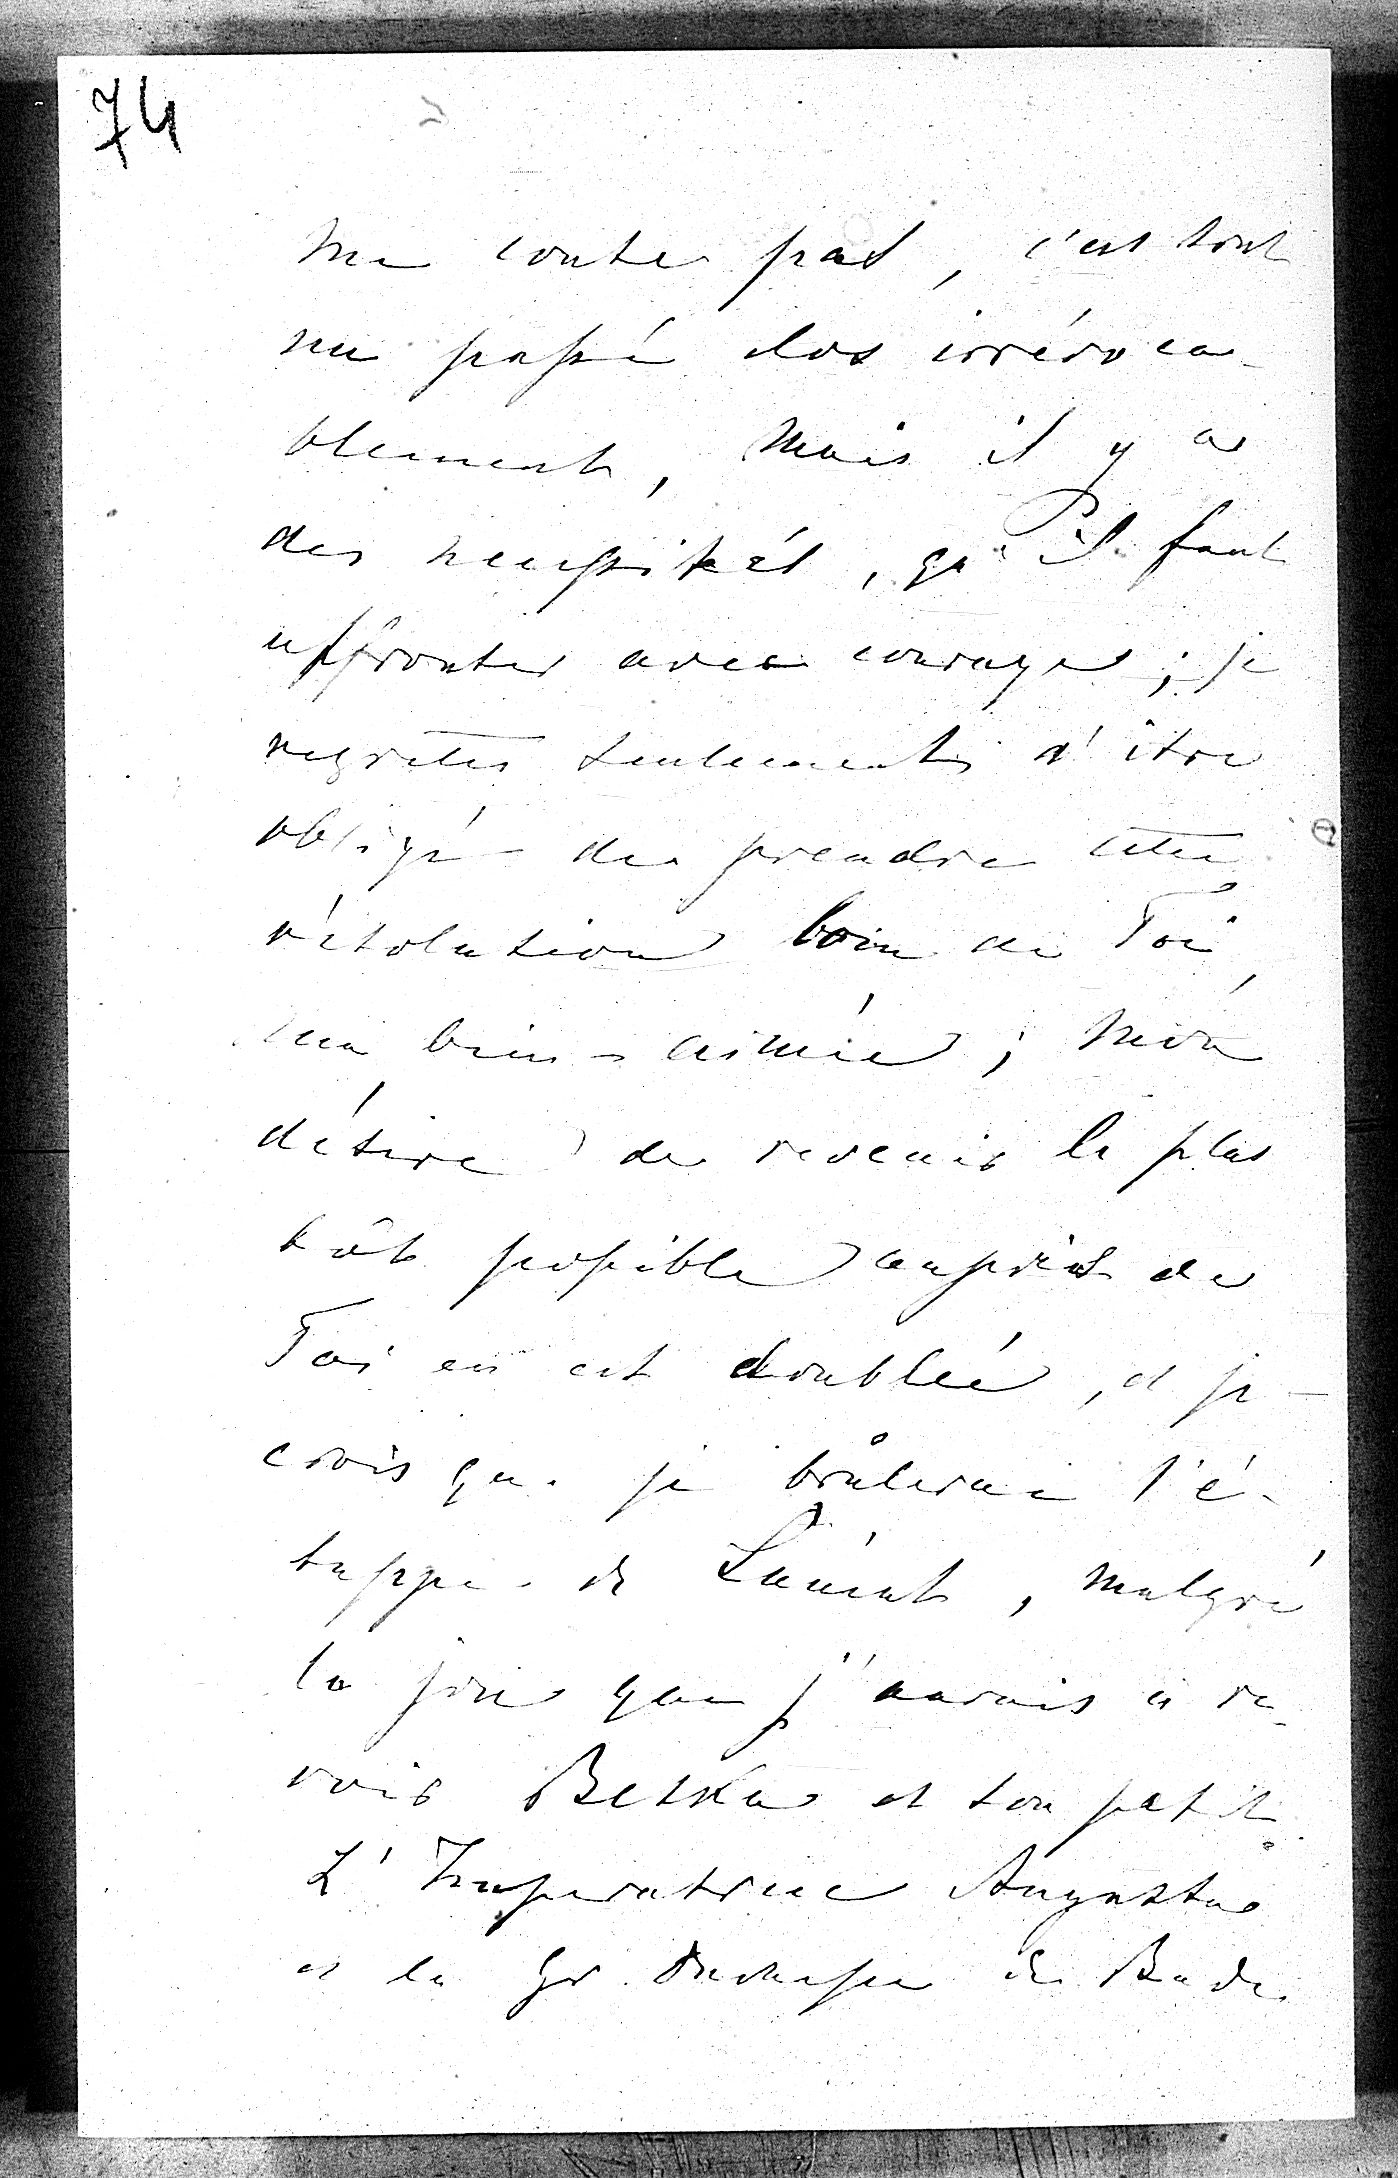 74
me coute pas, c'est tout
un passé clos irrévoca-
blement, mais il y a
des necessités, qu'il faut
affronter avec courage ; je
regrette seulement d'être
obligé de prendre cette
résolution loin de Toi,
ma bien-aimée ; mon
désire de revenir le plus
tôt possible auprès de
Toi en est doublée, et je
crois que je brûlerai l'é-
tappe de , malgré
la joie que j'aurais à re-
voir Betka et son petit.
L'Imperatrice Augusta
et la Gr. Duchesse de Bade